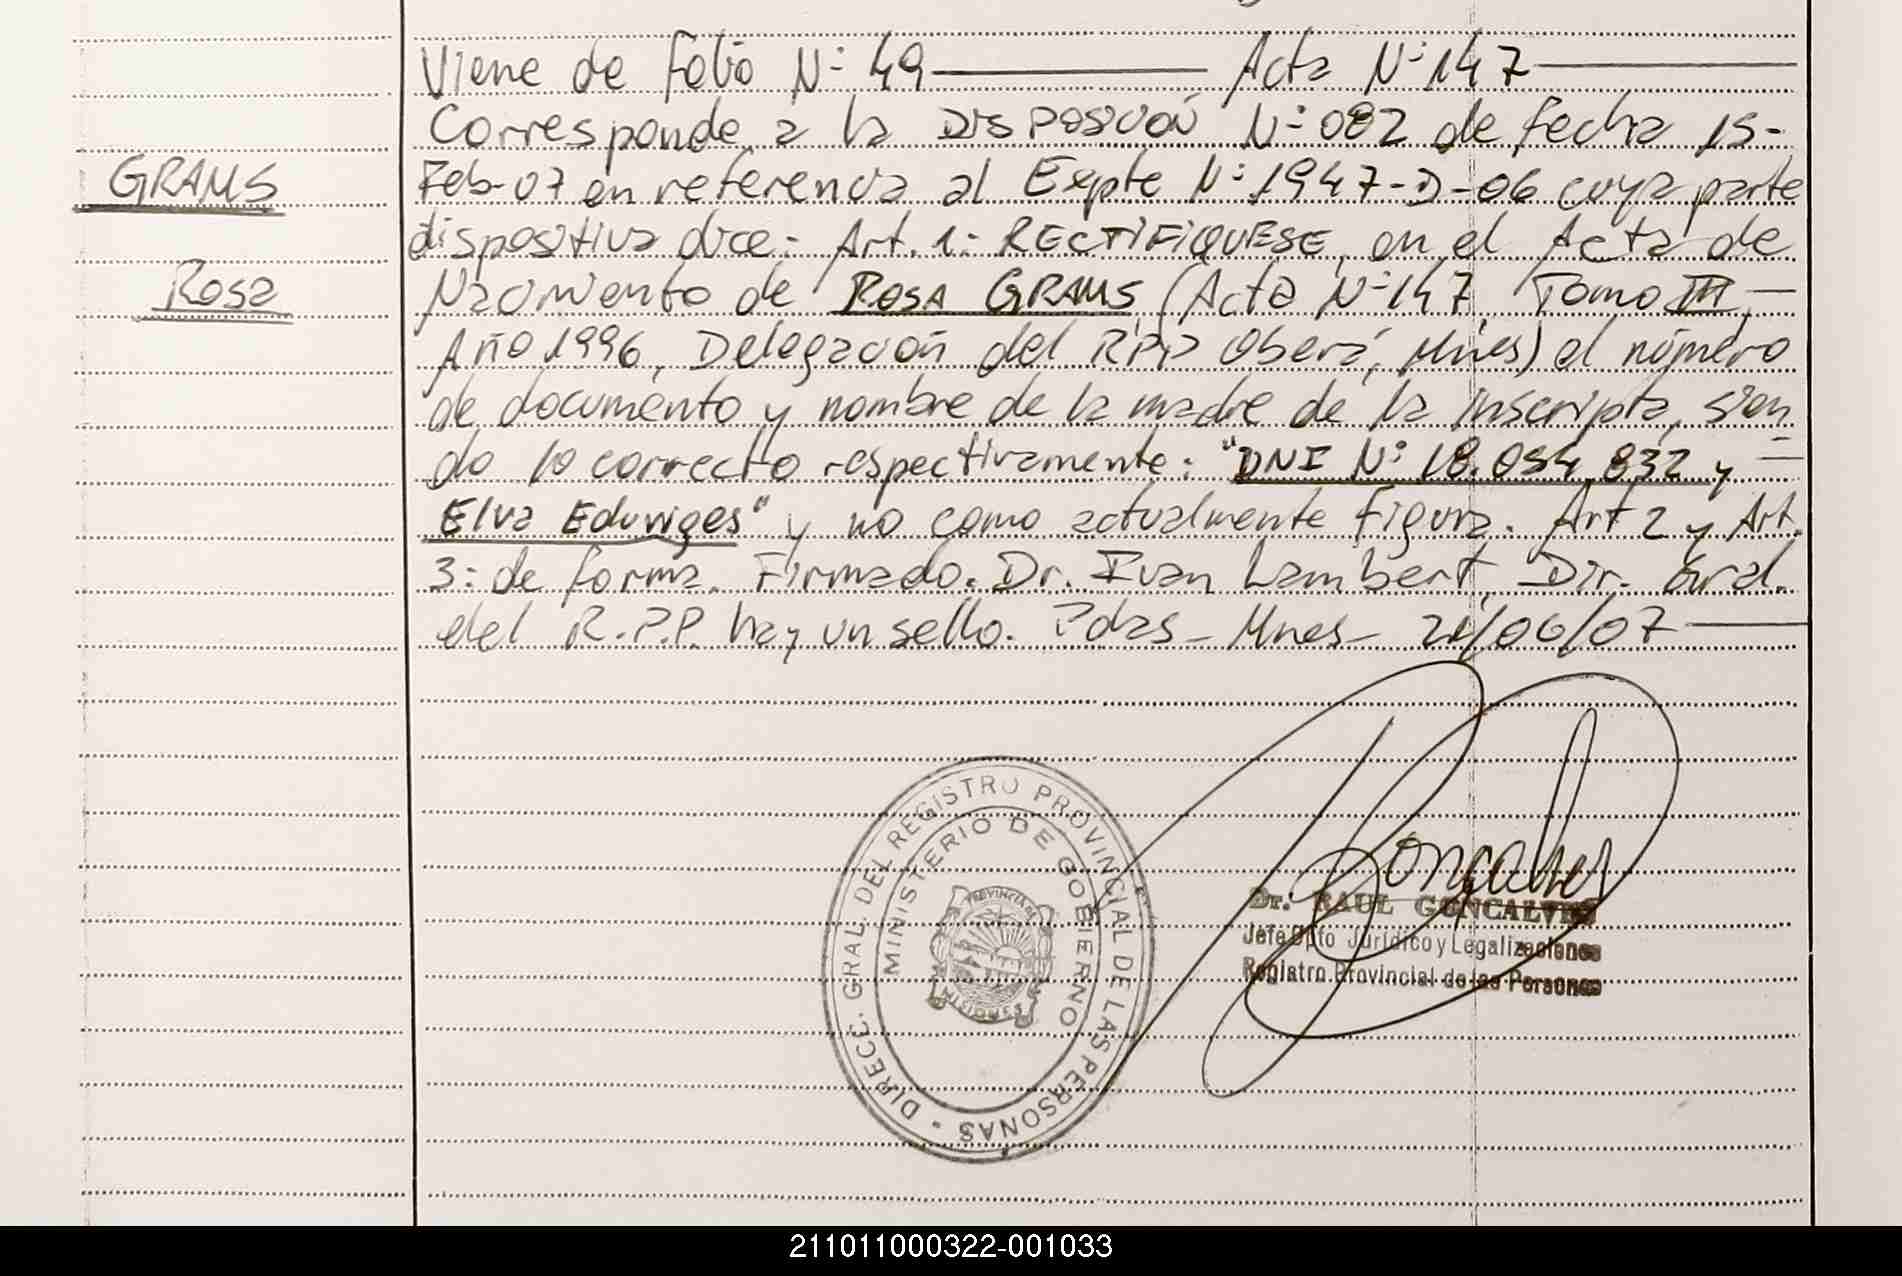 Viene de folio N: 49 Acta N: 147
Corresponde a la DISPOSICIÓN N: 082 de fecha 15-
GRAMS
Feb-07 en referencia al Expte N: 1947-D-06 cuya parte
dispositiva dice: Art. 1: RECTIFIQUESE, en el Acta de
Rosa
Nacimiento de ROSA GRAMS (Acta N: 147, Tomo III,
Año 1996, Delegación del RPP Oberá, Mnes) el número
de documento y nombre de la madre de la inscripta, sien
do lo correcto respectivamente: "DNI N: 18.054.832 y
Elva Eduviges" y no como actualmente figura. Art 2 y Art.
3: de forma. Firmado. Dr. Ivan Lambert, Dir. Gral.
del R.P.P. hay un sello. Pdas - Mnes - 21/06/07
DIRECC. GRAL. DEL REGISTRO PROVINCIAL DE LAS PERSONAS
MINISTERIO DE GOBIERNO
PROVINCIA DE
MISIONES
Goncalves
Dr. RAUL GONCALVES
Jefe Dpto Jurídico y Legalizaciones
Registro Provincial de las Personas
211011000322-001033